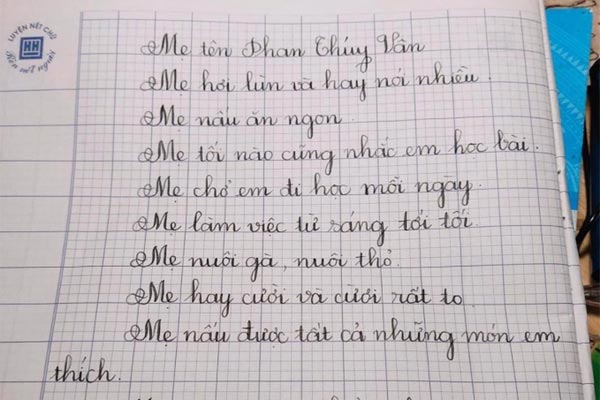 LUYỆN NÉT CHỮ
HH
Rèn nết người
Mẹ tên Phan Thúy Vân
Mẹ hơi lùn và hay nói nhiều.
Mẹ nấu ăn ngon.
Mẹ tối nào cũng nhắc em học bài.
Mẹ chở em đi học mỗi ngày.
Mẹ làm việc từ sáng tới tối.
Mẹ nuôi gà, nuôi thỏ.
Mẹ hay cười và cười rất to.
Mẹ nấu được tất cả những món em
thích.